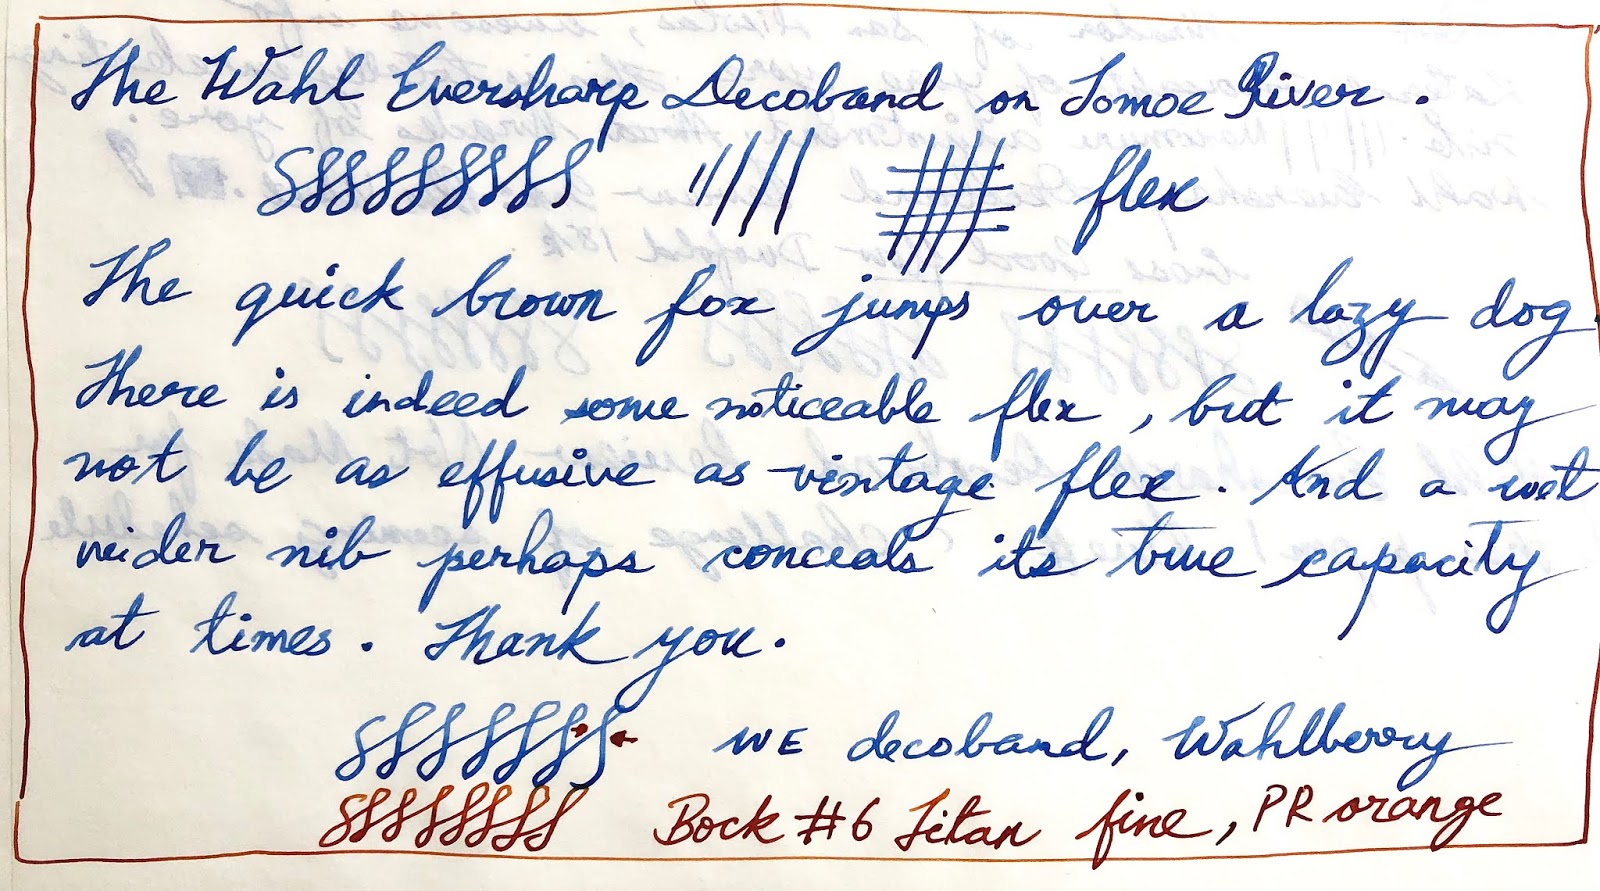 The Wahl Eversharp Decoband on Tomoe River.
flex
The quick brown fox jumps over a lazy dog.
There is indeed some noticeable flex, but it may
not be as effusive as vintage flex. And a wet
wider nib perhaps conceals its true capacity
at times. Thank you.
WE decoband, Wahlberry
Bock #6 Titan fine, PR orange